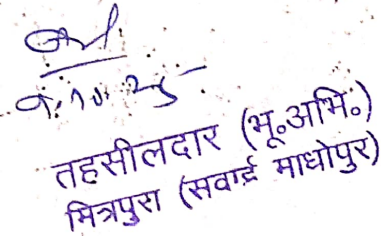 तहसीलदार (भू०अभि०)
मित्रपुरा (सवाई माधोपुर)